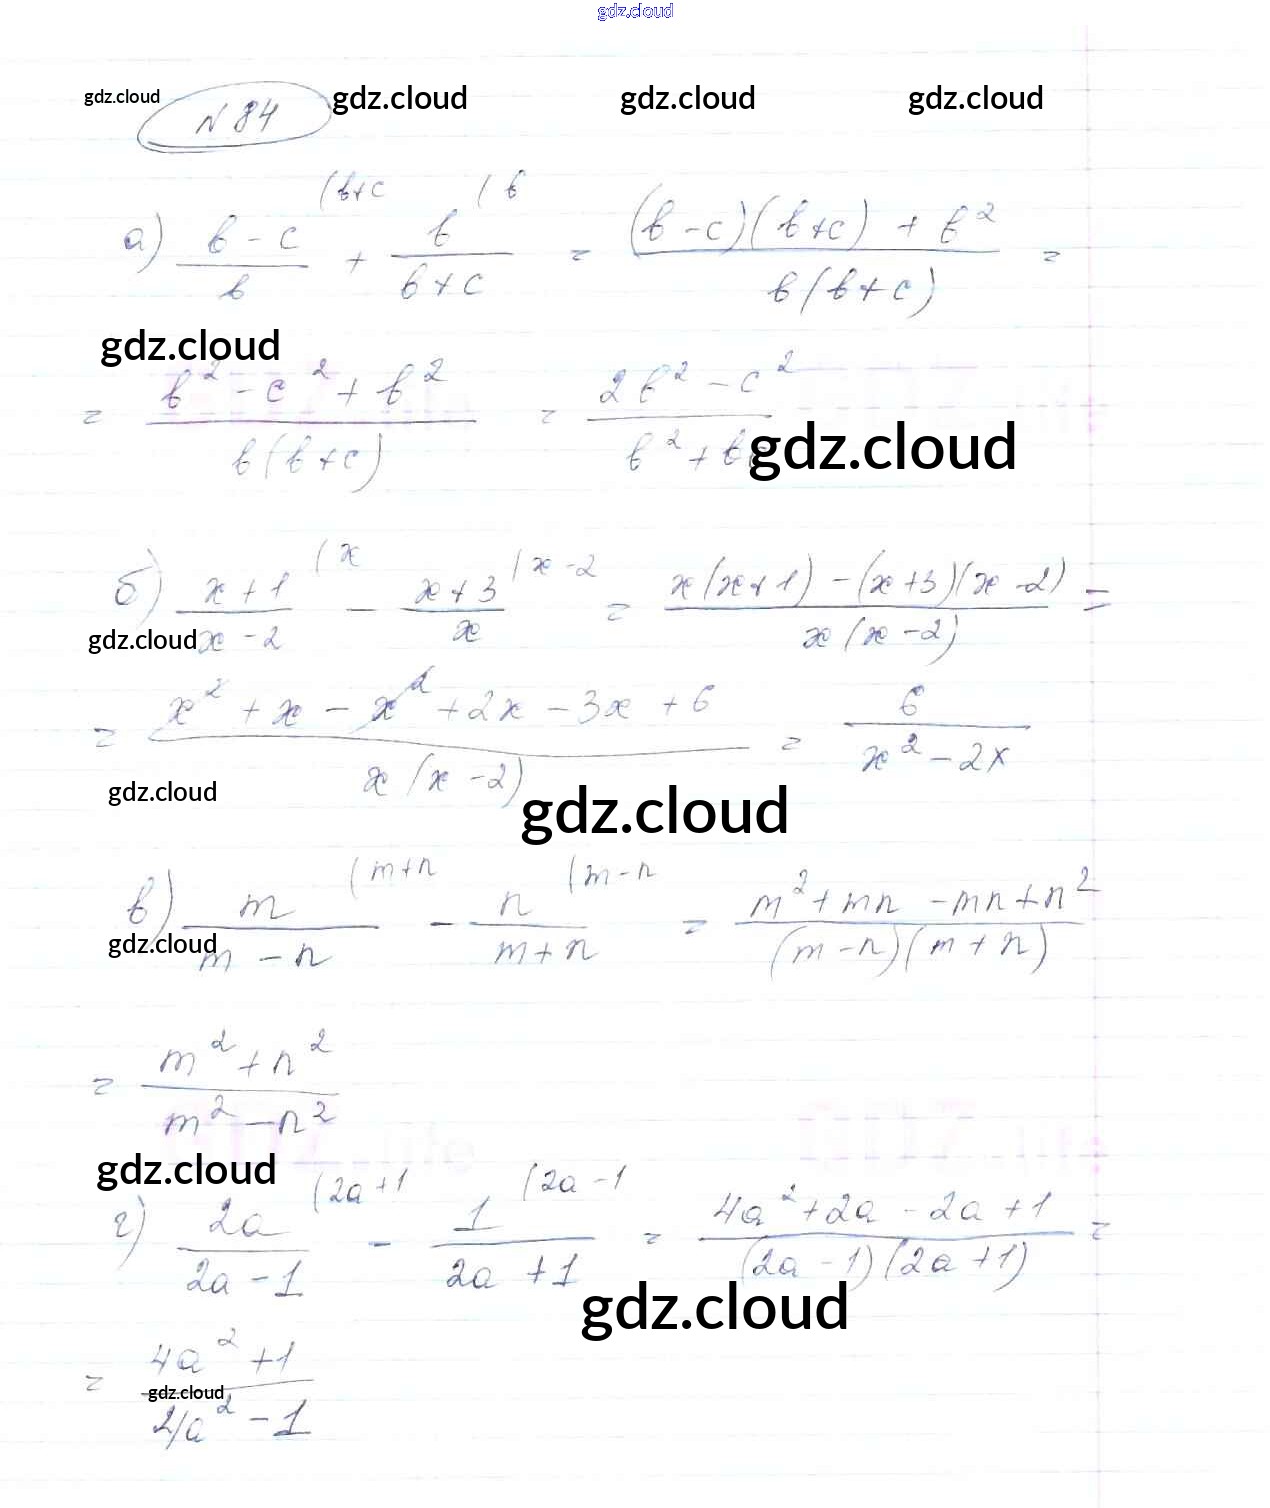 gdz.cloud
gdz.cloud № 84 gdz.cloud gdz.cloud gdz.cloud
а) (b-c)/b (b+c + b/(b+c) (b = ((b-c)(b+c) + b²)/(b(b+c)) =
gdz.cloud
= (b² - c² + b²)/(b(b+c)) = (2b² - c²)/(b² + bc gdz.cloud
б) (x+1)/(x-2) (x - (x+3)/x (x-2 = (x(x+1) - (x+3)(x-2))/(x(x-2)) =
gdz.cloud
= (x² + x - x² + 2x - 3x + 6)/(x(x-2)) = 6/(x² - 2x)
gdz.cloud gdz.cloud
в) m/(m-n) (m+n - n/(m+n) (m-n = (m² + mn - mn + n²)/((m-n)(m+n))
gdz.cloud
= (m² + n²)/(m² - n²)
gdz.cloud
г) 2a/(2a-1) (2a+1 - 1/(2a+1) (2a-1 = (4a² + 2a - 2a + 1)/((2a-1)(2a+1)) =
gdz.cloud
= (4a² + 1)/(4a² - 1)
gdz.cloud